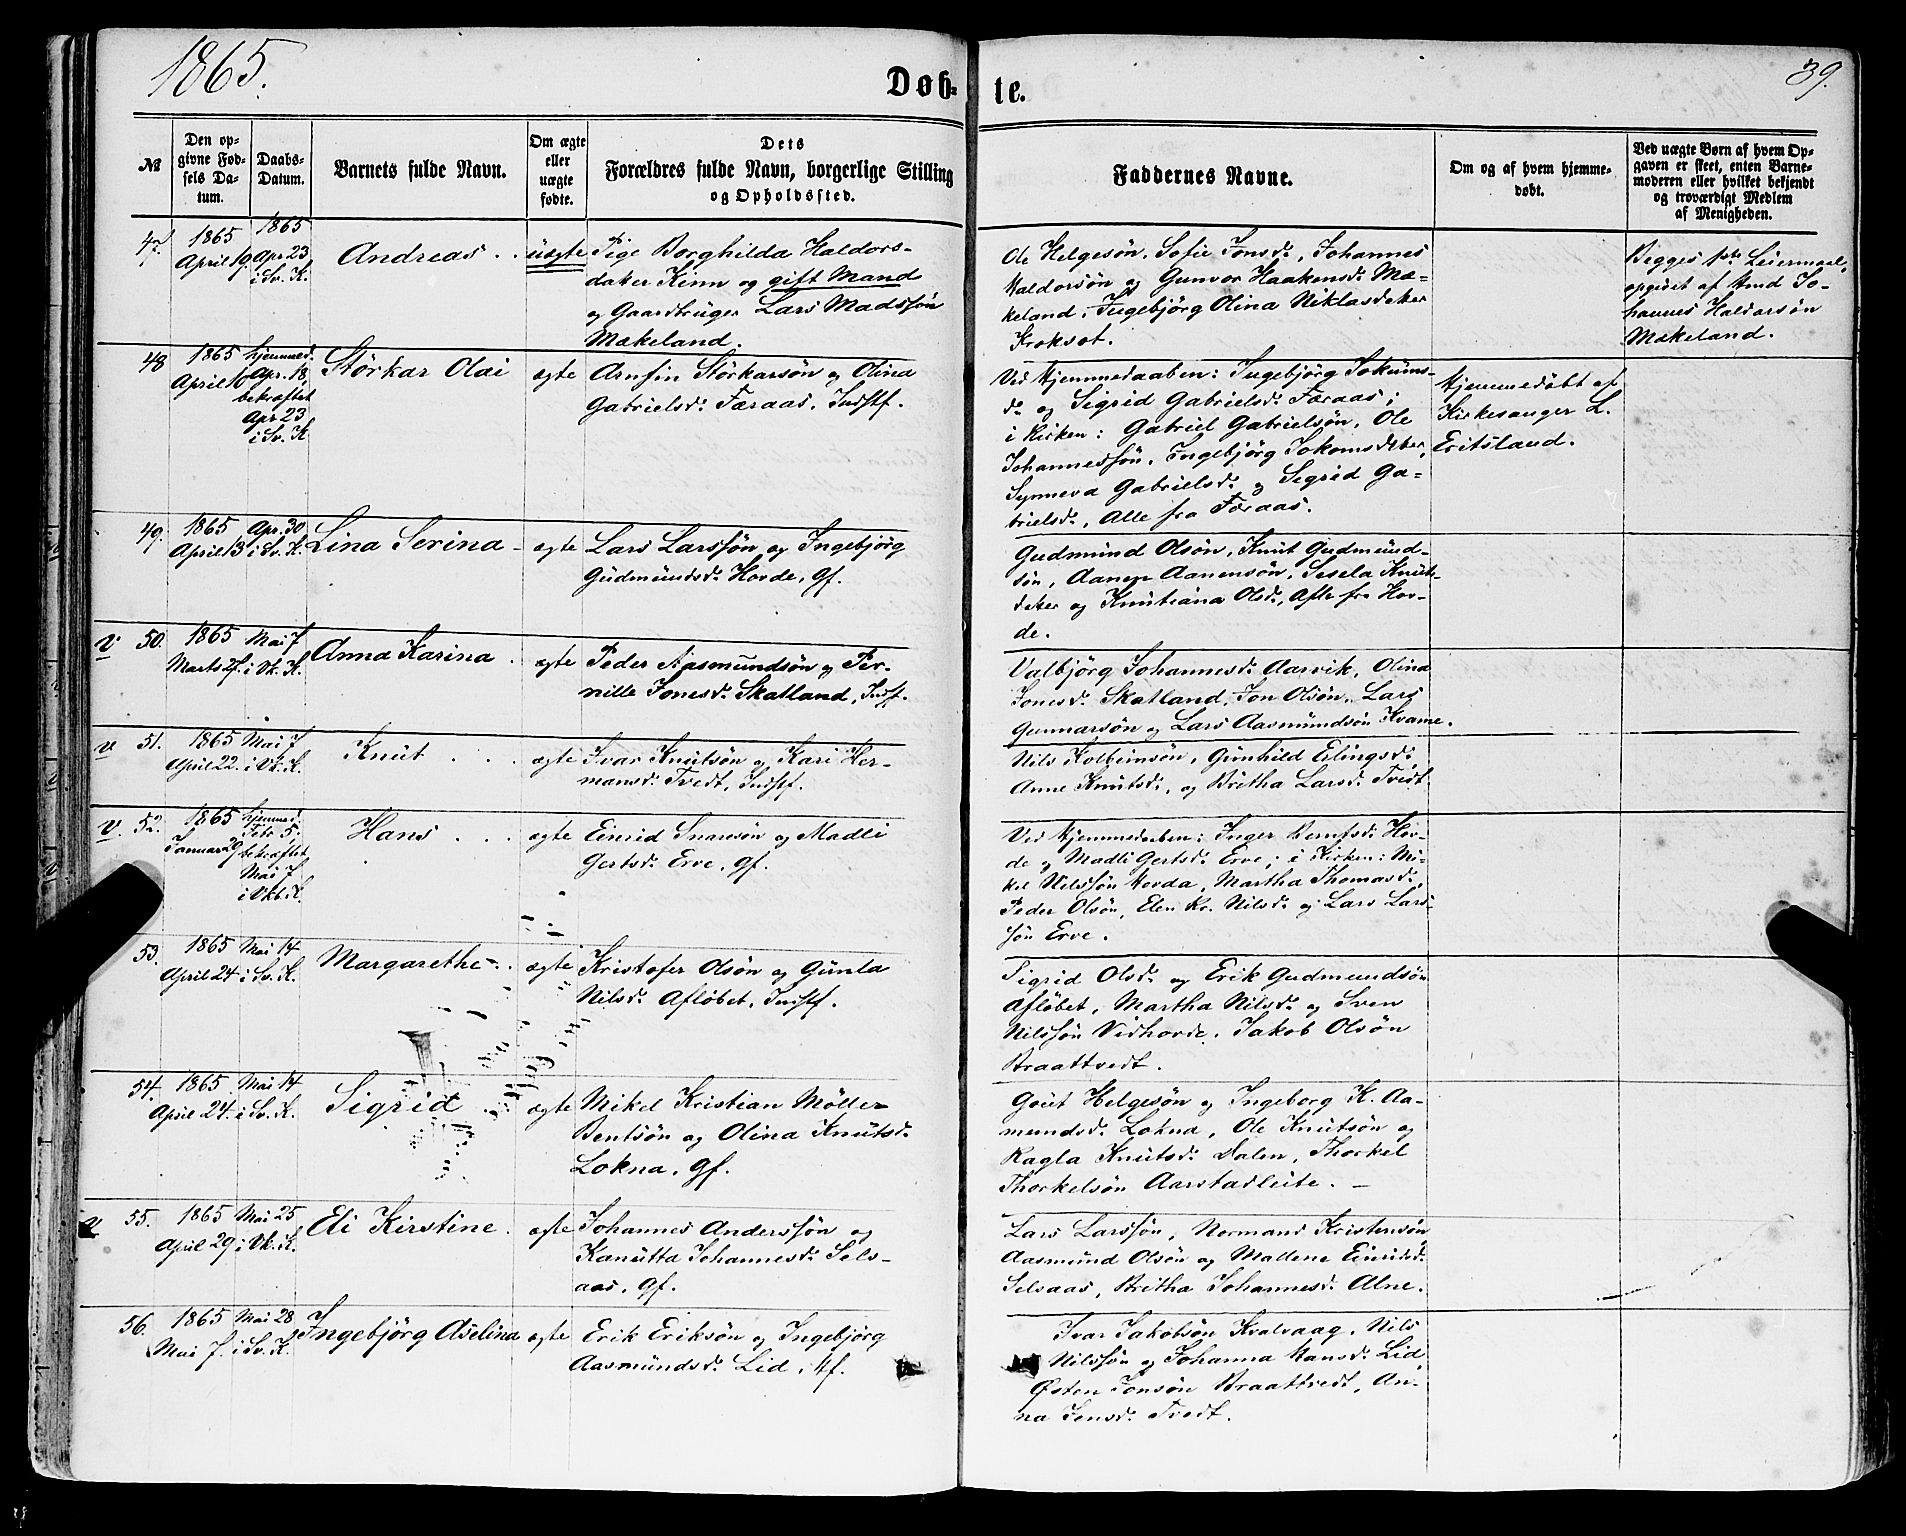 1865.
39.
Døb-
te.
№
Den op-
givne Fød-
sels Da-
tum.
Daabs-
Datum.
Barnets fulde Navn.
Om ægte
eller
uægte
fødte.
Dets
Forældres fulde Navn, borgerlige Stilling
og Opholdssted.
Faddernes Navne.
Om og af hvem hjemme-
døbt.
Ved uægte Børn af hvem Op-
gaven er skeet, enten Barne-
moderen eller hvilket bekjendt
og troværdigt Medlem
af Menigheden.
47.
1865
April 19.
1865
Apr 23
i Sv. K.
Andreas
uægte
Pige Borghilda Haldors-
daker Kinn og gift Mand
og Gaardbruger Lars Madssøn
Mækeland.
Ole Helgesøn, Sofie Jonsd., Johannes
Haldorsøn og Gunvor Haakensd. Mæ-
keland, Ingebjørg Olina Niklasdaker
Kroksot.
Begges 1ste Leiermaal,
opgivet af Amd Jo-
hannes Haldorsøn
Mækeland.
48
1865
April 16
hjemmed.
Apr. 18,
bekræftet
Apr 23
i Sv. K
Størkar Olai
ægte
Arnfin Størkarsøn og Olina
Gabrielsd. Færaas, Indstf.
Ved Hjemmedaaben: Ingebjørg Jokums-
d. og Sigrid Gabrielsd. Færaas;
i Kirken: Gabriel Gabrielsøn, Ole
Johannessøn, Ingebjørg Jokomsdaker,
Synneva Gabrielsd. og Sigrid Ga-
brielsd., Alle fra Færaas.
Hjemmedøbt af
Kirkesanger L.
Eritsland.
49.
1865
April 13
Apr. 30
i Sv. K.
Lina Serina
ægte
Lars Larssøn og Ingebjørg
Gudmundsd. Hovde, gf.
Gudmund Olsøn, Knut Gudmund-
søn, Aanen Aanensøn, Sesela Knuts-
daker og Knutiana Olsd., Alle fra Hov-
de.
V
50.
1865
Marts 27.
Mai 7
i Vk. K.
Anna Karina
ægte
Peder Aasmundsøn og Per-
nille Jonesd. Skatland, Indstf.
Valbjörg Johannesd. Aarvik, Olina
Jonesd. Skatland, Jon Olsøn, Lars
Gunnarsøn og Lars Aasmundsøn Kvame.
V
51.
1865
April 22.
Mai 7
i Vk. K.
Knut
ægte
Ivar Knutsøn og Kari Her-
mansd. Tvedt, Indstf.
Nils Kolbeinsøn, Gunhild Erlingsd.,
Anne Knutsd., og Britha Larsd. Tvedt.
V.
52.
1865
Januar 29
hjemmed.
Febr. 5,
bekræftet
Mai 7
i Vkb. K.
Hans
ægte
Einrid Snaresøn og Madli
Gertsd. Erve, gf.
Ved Hjemmedaaben: Inger Berntsd. Hov-
de og Madli Gertsd. Erve; i Kirken: Mi-
kel Nilssøn Hovda, Martha Thomasd.,
Peder Olsøn, Elen Kr. Nilsd. og Lars Lars-
søn Erve.
53.
1865
April 24
Mai 14
i Sv. K.
Margarethe
ægte
Kristofer Olsøn og Gunla
Nilsd. Afløbet, Indstf.
Sigrid Olsd. og Erik Gudmundsøn
Afløbet, Martha Nilsd. og Sven
Nilssøn Vidhovde, Jakob Olsøn
Braattvedt.
54.
1865
April 24.
Mai 14
i Sv. K.
Sigrid
ægte
Mikel Kristian Møller
Bentsøn og Olina Knutsd.
Lokna, gf.
Gout Helgesøn og Ingeborg K. Aa-
mundsd. Lokna, Ole Knutsøn og
Ragla Knutsd. Dalen, Thorkel
Thorkelsøn Aarstadleite.
V
55.
1865
April 29
Mai 25
i Vk. K.
Eli Kirstine
ægte
Johannes Anderssøn og
Kanutta Johannesd. Sels-
aas, gf.
Lars Larssøn, Normand Kristensøn,
Aasmund Olsøn og Mallene Einridsd.
Selsaas, Britha Johannesd. Alne.
56.
1865
Mai 7.
Mai 28
i Sv. K.
Ingebjørg Aselina
ægte
Erik Eriksøn og Ingebjørg
Aasmundsd. Lid, Hf.
Ivar Jakobsøn Kvalvaag, Nils
Nilssøn og Johanna Hansd. Lid,
Østen Jonsøn Braattvedt, An-
na Jensd. Tvedt.